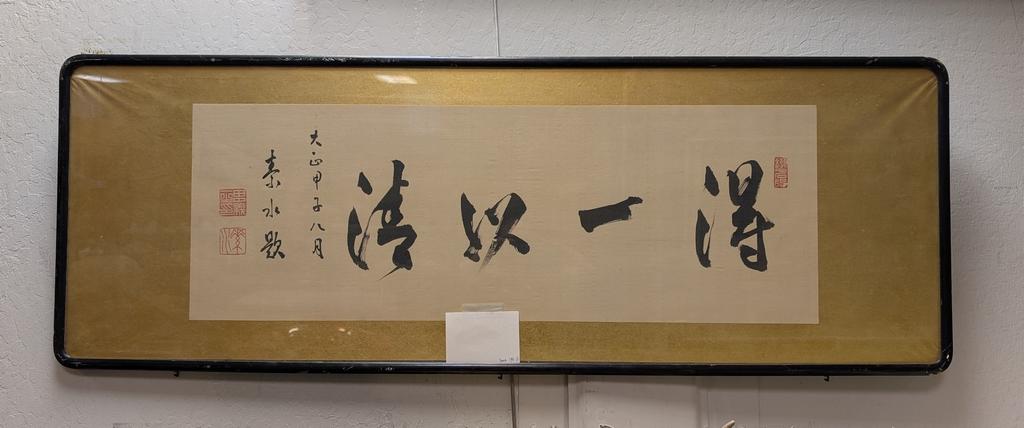 得一以清
大正甲子八月
素水題